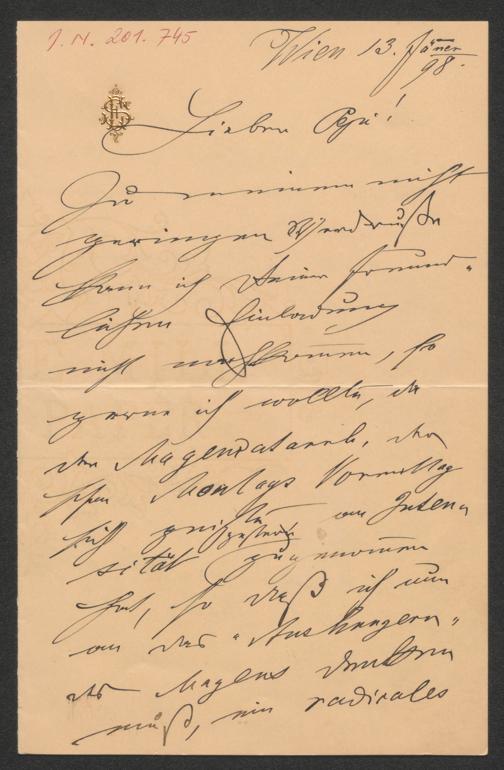 I. N. 201.745
Wien 13. Jäner
98.
Lieber Pepi!
Zu meinem nicht
geringen Verdruße
kann ich Deiner freund-
lichen Einladung
nicht nachkommen, so
gerne ich wollte, da
der Magencatarrh, der
schon Montags Vormittag
sich zeigte, gestern an Inten
sität zugenommen
hat, so daß ich nun
an das "Aushungern"
des Magens denken
muß, ein radicales